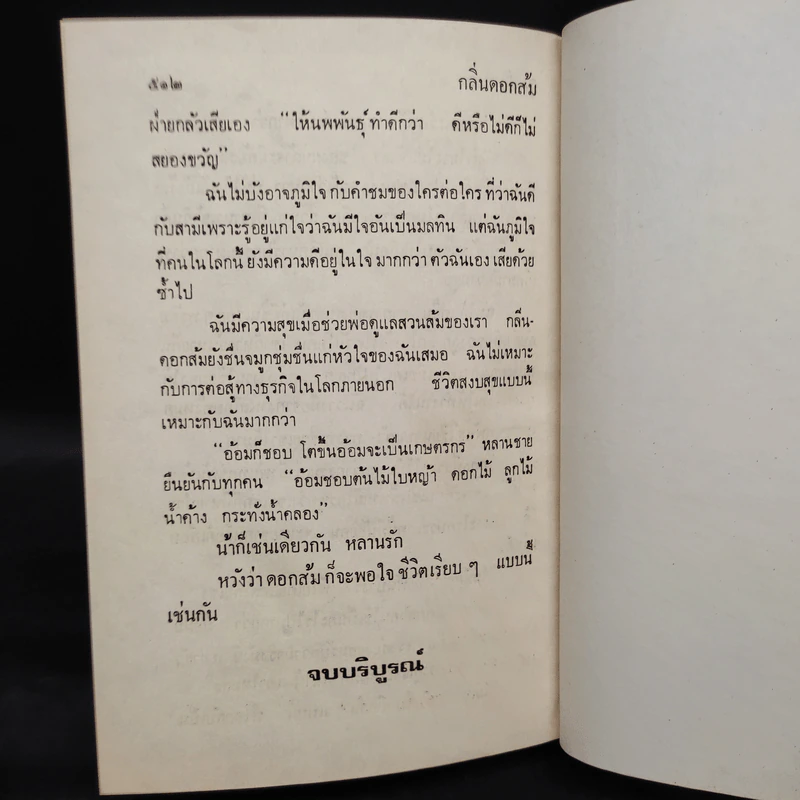 ๕๑๒ กลิ่นดอกส้ม
ฝ่ายกลัวเสียเอง “ให้นพพันธุ์ ทำดีกว่า ดีหรือไม่ดีก็ไม่
สยองขวัญ”
ฉันไม่บังอาจภูมิใจ กับคำชมของใครต่อใคร ที่ว่าฉันดี
กับสามีเพราะรู้อยู่แก่ใจว่าฉันมีใจอันเป็นมลทิน แต่ฉันภูมิใจ
ที่คนในโลกนี้ ยังมีความดีอยู่ในใจ มากกว่า ตัวฉันเอง เสียด้วย
ซ้ำไป
ฉันมีความสุขเมื่อช่วยพ่อดูแลสวนส้มของเรา กลิ่น-
ดอกส้มยังชื่นจมูกชุ่มชื่นแก่หัวใจของฉันเสมอ ฉันไม่เหมาะ
กับการต่อสู้ทางธุรกิจในโลกภายนอก ชีวิตสงบสุขแบบนี้
เหมาะกับฉันมากกว่า
“อ้อมก็ชอบ โตขึ้นอ้อมจะเป็นเกษตรกร” หลานชาย
ยืนยันกับทุกคน “อ้อมชอบต้นไม้ใบหญ้า ดอกไม้ ลูกไม้
น้ำค้าง กระทั่งน้ำคลอง”
น้าก็เช่นเดียวกัน หลานรัก
หวังว่า ดอกส้ม ก็จะพอใจ ชีวิตเรียบ ๆ แบบนี้
เช่นกัน
จบบริบูรณ์